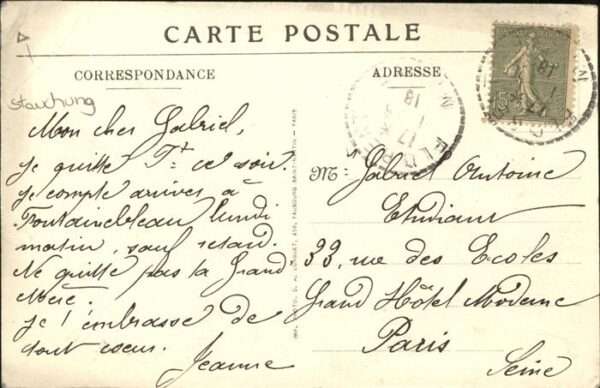 CARTE POSTALE
CORRESPONDANCE
ADRESSE
Mon cher Gabriel,
je quitte ce soir.
je compte arriver à
Fontainebleau lundi
matin, sauf retard.
Ne quitte pas ta Grand
Mère.
je t'embrasse de
tout coeur.
Jeanne
M: Gabriel Antoine
Etudiant
33, rue des Ecoles
Grand Hôtel Moderne
Paris
Seine
17
1
18